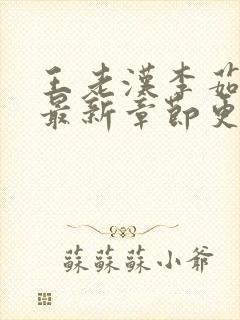 王老漢李茹
最新章節更
蘇蘇蘇小爺